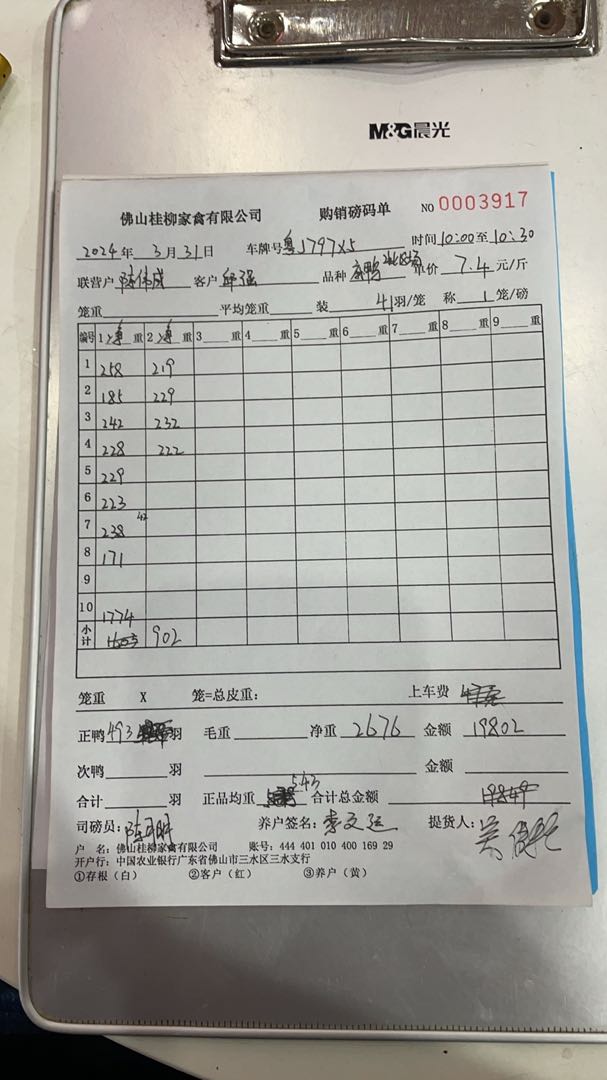 M&G晨光
佛山桂柳家禽有限公司 购销磅码单 NO 0003917
2024年 3月31日 车牌号 粤J797X5 时间10:00至10:30
联营户 陈伟成 客户 邱强 品种 麻鸭 单价 7.4 元/斤
笼重 平均笼重 装 41羽/笼 称 1 笼/磅
编号 1 净 重 2 净 重 3 重 4 重 5 重 6 重 7 重 8 重 9 重
1 258 219
2 185 229
3 242 232
4 228 222
5 229
6 223
7 238 42
8 171
9
10 1774
小计 902
笼重 X 笼=总皮重: 上车费
正鸭 493 羽 毛重 净重 2676 金额 19802
次鸭 羽 金额
合计 羽 正品均重 5.43 合计总金额 19849
司磅员: 养户签名: 李文运 提货人:
户 名: 佛山桂柳家禽有限公司 账号: 444 401 010 400 169 29
开户行: 中国农业银行广东省佛山市三水区三水支行
①存根(白) ②客户(红) ③养户(黄)